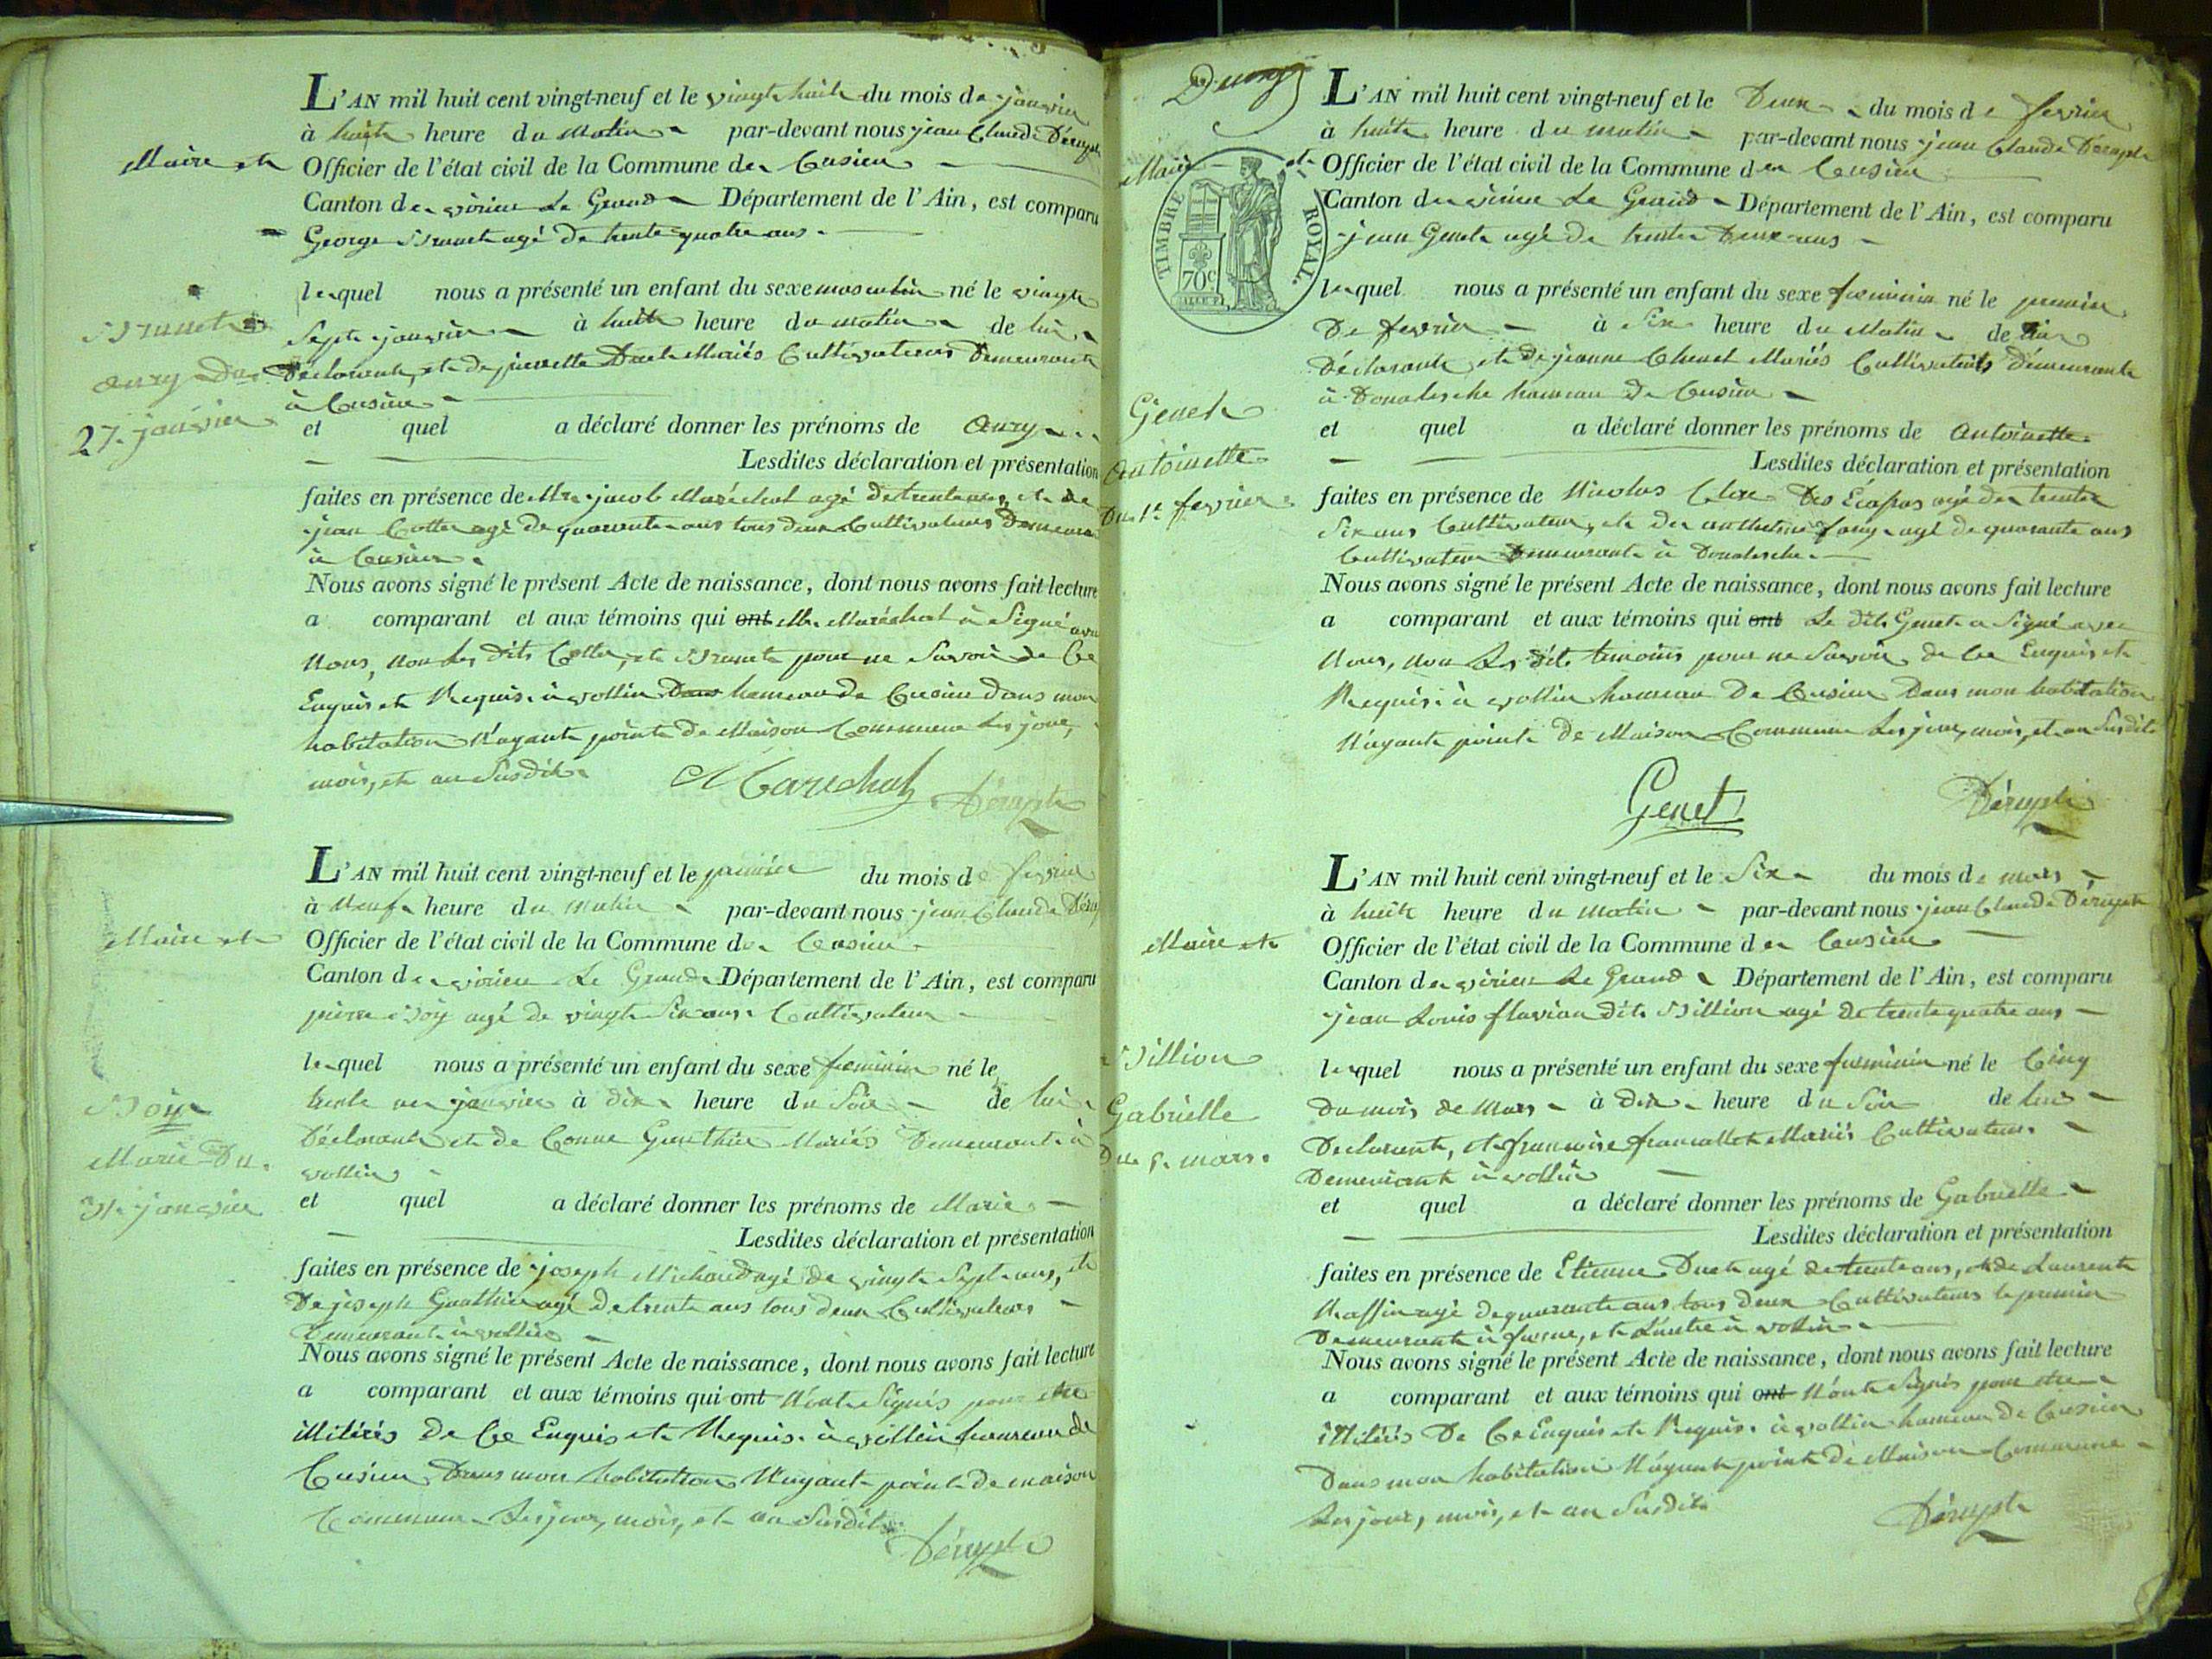 L'AN mil huit cent vingt-neuf et le vingt huit du mois de janvier
à huit heure du matin par-devant nous jean Claude Dérupt
Maire et Officier de l'état civil de la Commune de Cusieu
Canton de virieu Le Grand Département de l'Ain, est comparu
George Brunet agé de trente quatre ans.
lequel nous a présenté un enfant du sexe masculin né le vingt
Sept janvier à huit heure du matin de lui
Déclarant, et de Duet Mariés Cultivateurs Demeurant
à Cusieu
et quel a déclaré donner les prénoms de Anry
Lesdites déclaration et présentation
faites en présence de Mr. jacob Maréchal agé de trente ans, et de
jean Cottet agé de quarante ans tous deux Cultivateurs Demeurant
à Cusieu.
Nous avons signé le présent Acte de naissance, dont nous avons fait lecture
a comparant et aux témoins qui ont Mr. Maréchal à Signé avec
Nous, non Les dits Cottet, et Brunet pour ne Savoir de Ce
Enquis et Requis. à vollien hameau de Cusieu dans mon
habitation N'ayant point de Maison Commune Les jour,
mois, et an Susdit.
Marechal Dérupt
Brunet
Anry Du
27. janvier
L'AN mil huit cent vingt-neuf et le premier du mois de fevrier
à Neuf heure du matin par-devant nous jean Claude Dérupt
Maire et Officier de l'état civil de la Commune de Cusieu
Canton de virieu Le Grand Département de l'Ain, est comparu
pierre Boÿ agé de vingt Six ans. Cultivateur
lequel nous a présenté un enfant du sexe feminin né le
trente un janvier à dix heure du Soir de lui
Déclarant et de Gauthier Mariés Demeurant à
vollien
et quel a déclaré donner les prénoms de Marie
Lesdites déclaration et présentation
faites en présence de joseph Michaud agé de vingt Sept ans, et
De joseph Gauthier agé de trente ans tous deux Cultivateurs
Demeurant à vollien
Nous avons signé le présent Acte de naissance, dont nous avons fait lecture
a comparant et aux témoins qui ont N'ont Signés pour etre
illitérés de Ce Enquis et Requis. à vollien hameau de
Cusieu Dans mon habitation N'ayant point de maison
Commune Les jour, mois, et an Susdit.
Dérupt
Boÿ
Marie Du
31. janvier
L'AN mil huit cent vingt-neuf et le Deux du mois de fevrier
à huit heure du matin par-devant nous jean Claude Dérupt
Maire et Officier de l'état civil de la Commune de Cusieu
Canton de virieu Le Grand Département de l'Ain, est comparu
jean Genet agé de trente Deux ans
TIMBRE ROYAL
70c
lequel nous a présenté un enfant du sexe feminin né le premier
De fevrier à Six heure du Matin de lui
Déclarant, et de jeanne Chenet Mariés Cultivateurs Demeurant
à hameau de Cusieu
et quel a déclaré donner les prénoms de Antoinette
Lesdites déclaration et présentation
faites en présence de Nicolas agé de trente
Six ans Cultivateur, et de agé de quarante ans
Cultivateur Demeurant à
Nous avons signé le présent Acte de naissance, dont nous avons fait lecture
a comparant et aux témoins qui ont Le dit Genet a Signé avec
Nous, non Les dits temoins pour ne Savoir de Ce Enquis et
Requis. à vollien hameau De Cusieu Dans mon habitation
N'ayant point De Maison Commune Les jour, mois, et an Susdit
Genet Dérupt
Genet
Antoinette
Du 1er fevrier
L'AN mil huit cent vingt-neuf et le Six du mois de mars
à huit heure du matin par-devant nous jean Claude Dérupt
Maire et Officier de l'état civil de la Commune de Cusieu
Canton de virieu Le Grand Département de l'Ain, est comparu
jean Louis flavian dit Billion agé de trente quatre ans
lequel nous a présenté un enfant du sexe feminin né le Cinq
Du mois de Mars à Dix heure du Soir de lui
Declarant, et francoise Mariés Cultivateurs
Demeurant à vollien
et quel a déclaré donner les prénoms de Gabrielle
Lesdites déclaration et présentation
faites en présence de Etienne Duet agé de trente ans, et de Laurent
agé de quarante ans tous deux Cultivateurs le premier
Demeurant à et L'autre à vollien
Nous avons signé le présent Acte de naissance, dont nous avons fait lecture
a comparant et aux témoins qui ont N'ont Signés pour etre
illitérés De Ce Enquis et Requis. à vollien hameau de Cusieu
Dans mon habitation N'ayant point de Maison Commune
Les jour, mois, et an Susdit
Dérupt
Billion
Gabrielle
Du 5. mars.